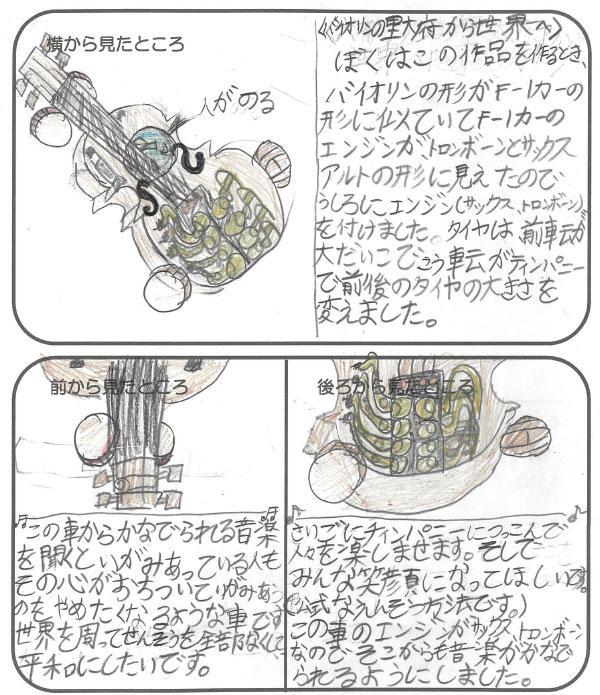 横から見たところ
人がのる
〈バイオリンの里大府から世界へ〉
ぼくはこの作品を作るとき、
バイオリンの形がF-1カーの
形に似ていてF-1カーの
エンジンが、トロンボーンとサックス
アルトの形に見えたので
うしろにエンジン(サックス、トロンボーン)
を付けました。タイヤは、前車云が
大だいこでこう車云がティンパニー
で前後のタイヤの大きさを
変えました。
前から見たところ
この車からかなでられる音楽
を聞くといがみあっている人も
その心がおちついていがみあう
のをやめたくなるような車です
世界を周ってせんそうを全部なくして
平和にしたいです。
後ろから見たところ
さいごにティンパニーにつっこんで
人々を楽しませます。そして
みんな笑顔になってほしいです。
(公式なえんそう方法です。)
この車のエンジンがサックス、トロンボーン
なのでそこからも音楽がかなで
られるようにしました。